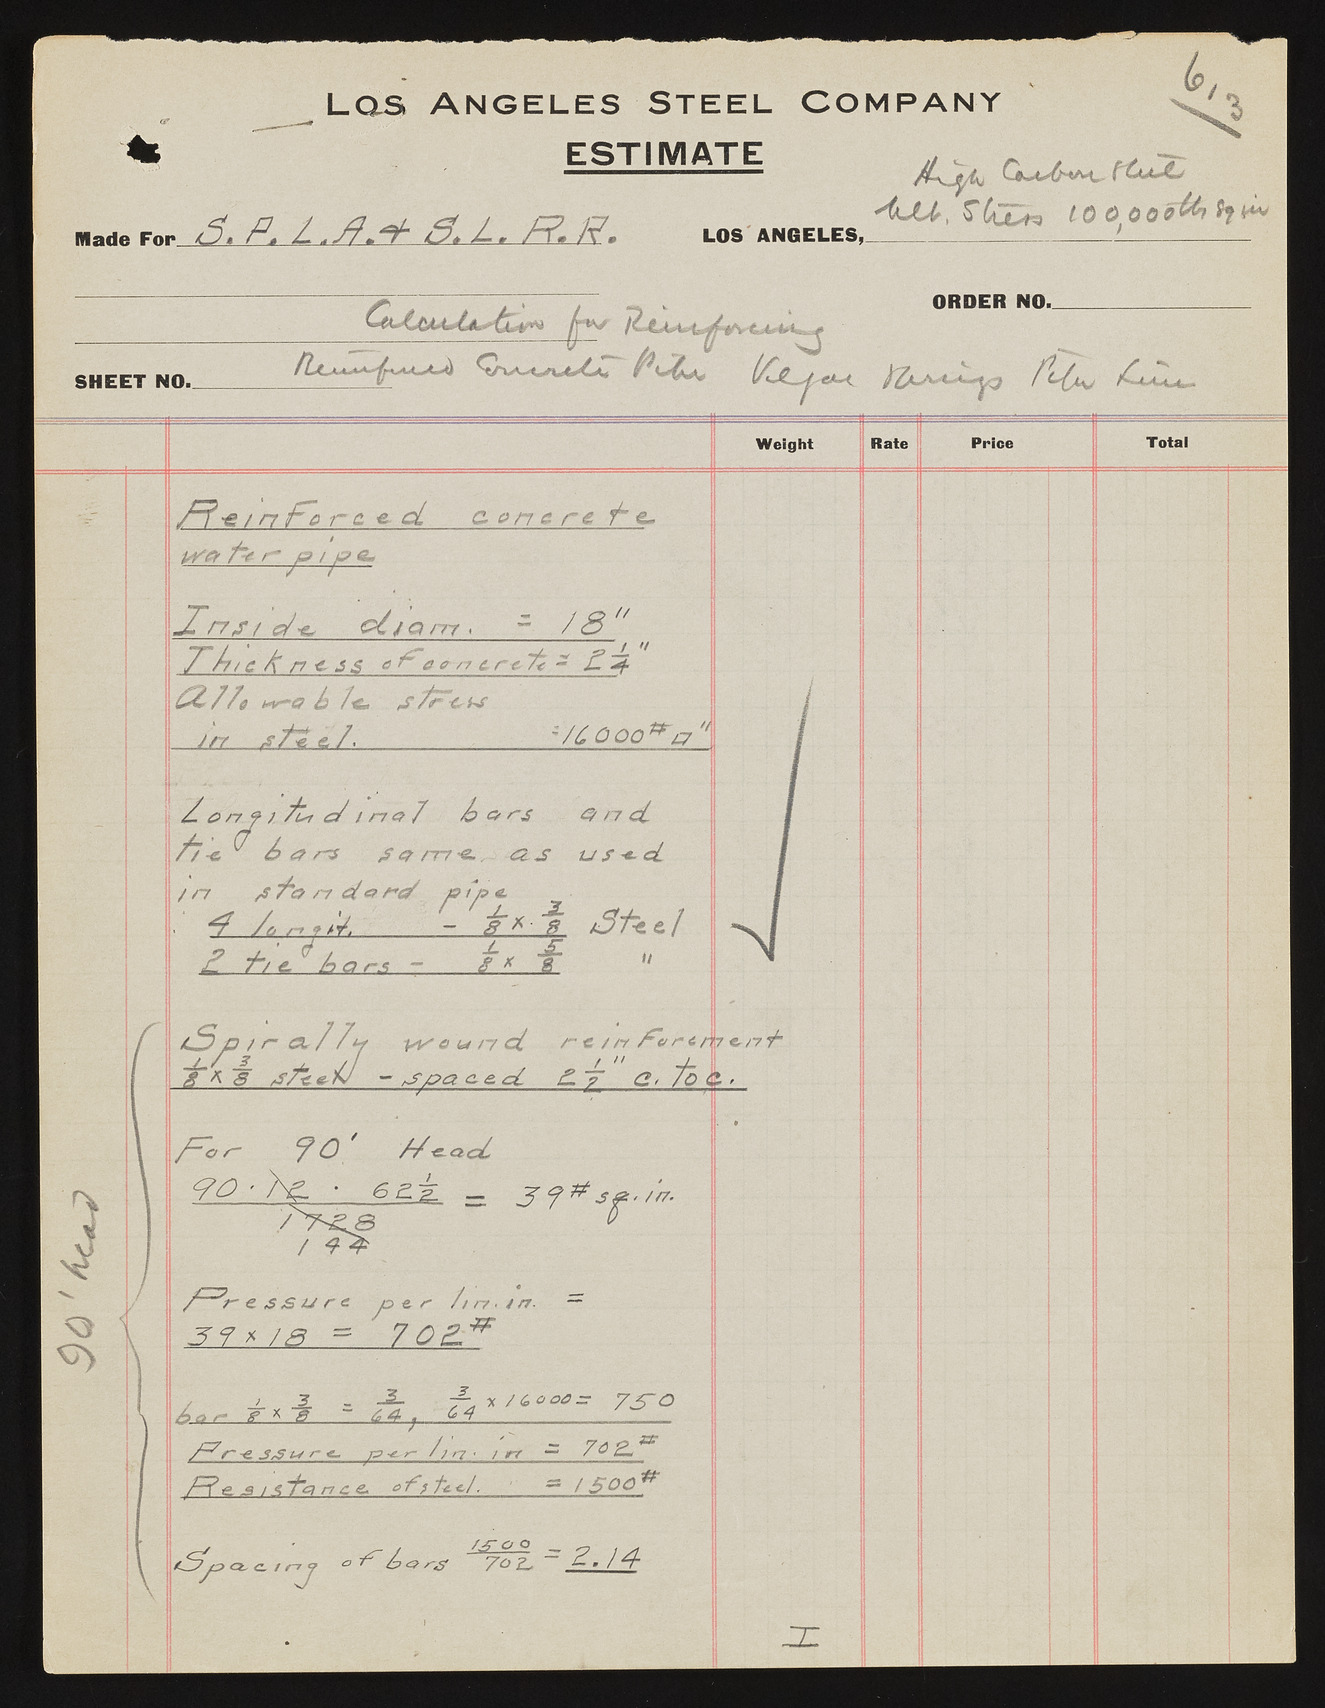 6,3
LOS ANGELES STEEL COMPANY
ESTIMATE
High Carbon Steel
Ult. Stress 100,000 lbs sq in
Made For S.P.L.A.& S.L.R.R.
LOS ANGELES,
ORDER NO.
Calculation for Reinforcing
SHEET NO. Reinforced Concrete Pipe Springs Pipe Line
Weight Rate Price Total
Reinforced concrete
water pipe
Inside diam. = 18"
Thickness of concrete = 2 1/4"
Allowable stress
in steel. = 16000# □"
Longitudinal bars and
tie bars same as used
in standard pipe
4 longit. - 1/8 x 3/8 Steel
2 tie bars - 1/8 x 5/8 "
Spirally wound reinforcment
1/8 x 3/8 steel - spaced 2 1/2" c. to c.
For 90' Head
90 · 12 · 62 1/2 = 39# sq. in.
1728
144
90' head
Pressure per lin. in. =
39 x 18 = 702#
bar 1/8 x 3/8 = 3/64, 3/64 x 16000 = 750
Pressure per lin. in = 702#
Resistance of steel. = 1500#
Spacing of bars 1500/702 = 2.14
I